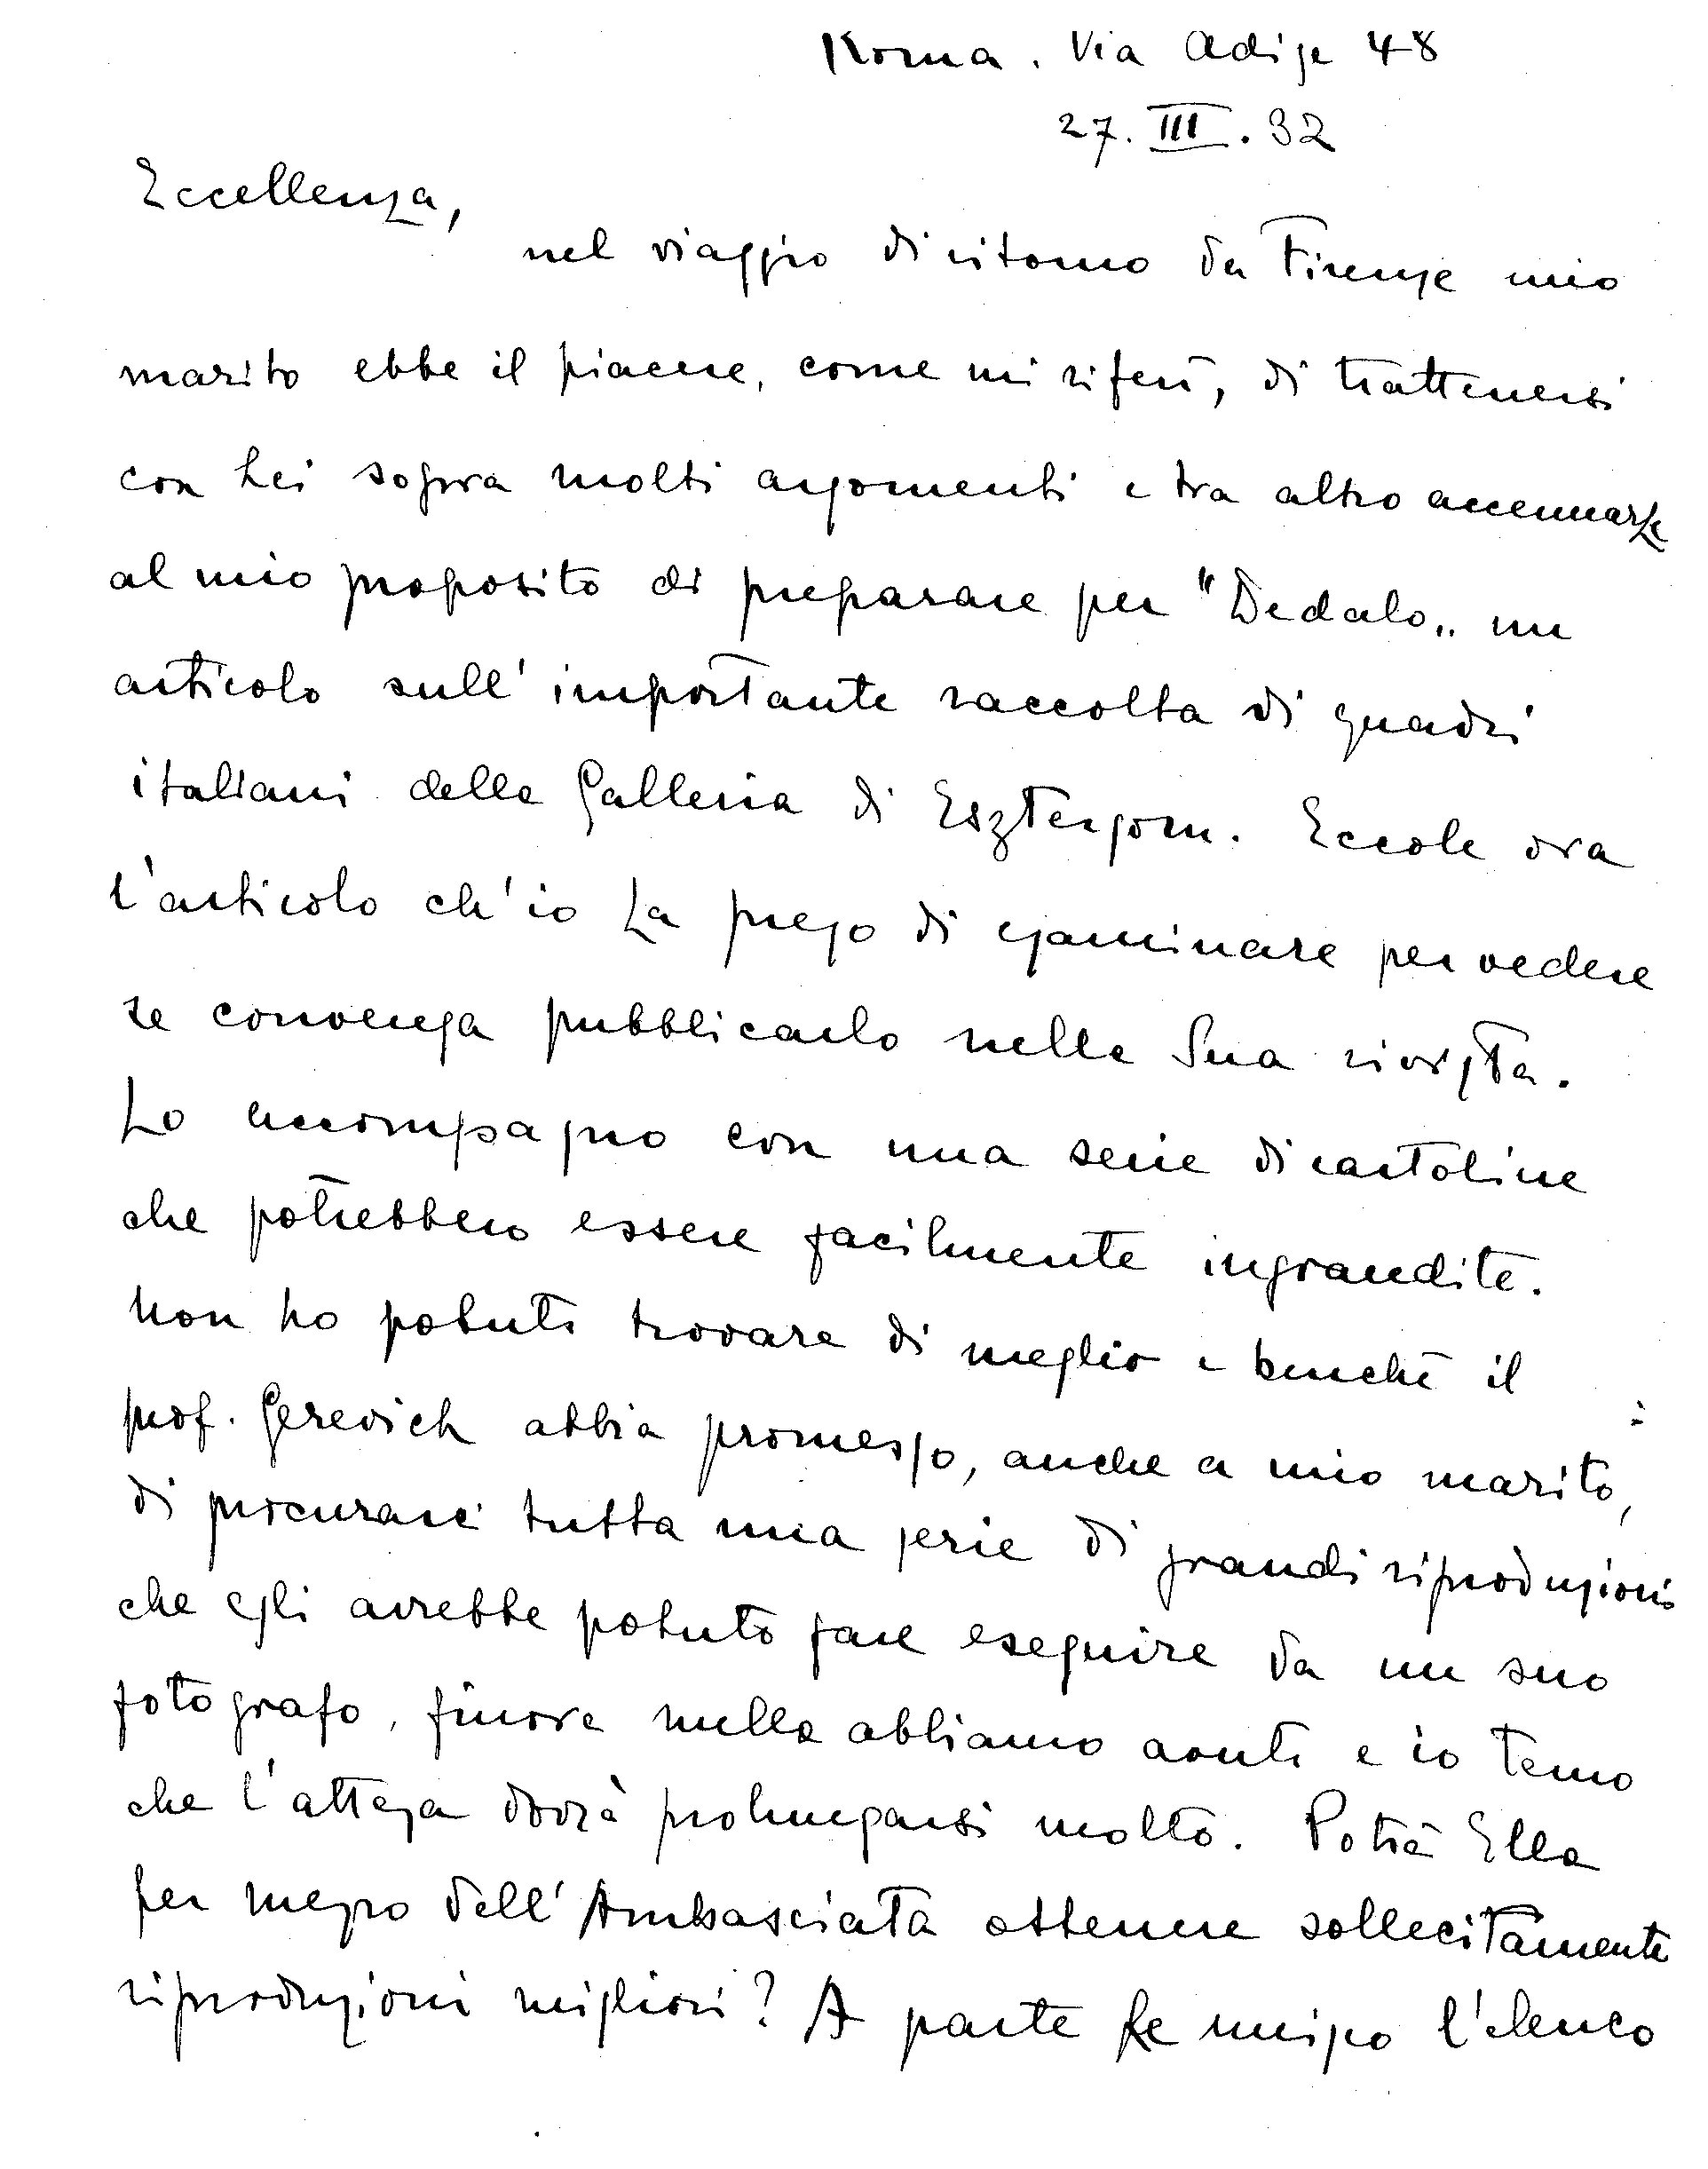 Roma. Via Adige 48
27. III. 32
Eccellenza,
nel viaggio di ritorno da Firenze mio
marito ebbe il piacere, come mi riferì, di trattenersi
con Lei sopra molti argomenti e tra altro accennarLe
al mio proposito di preparare per "Dedalo„ un
articolo sull'importante raccolta di quadri
italiani della Galleria di Esztergom. Eccole ora
l'articolo ch'io La prego di esaminare per vedere
se convenga pubblicarlo nella Sua rivista.
Lo accompagno con una serie di cartoline
che potrebbero essere facilmente ingrandite.
Non ho potuto trovare di meglio e benchè il
prof. Gerevich abbia promesso, anche a mio marito,
di procurarci tutta una serie di grandi riproduzioni
che egli avrebbe potuto fare eseguire da un suo
fotografo, finora nulla abbiamo avuto e io temo
che l'attesa dovrà prolungarsi molto. Potrà Ella
per mezzo dell'Ambasciata ottenere sollecitamente
riproduzioni migliori? A parte Le unisco l'elenco